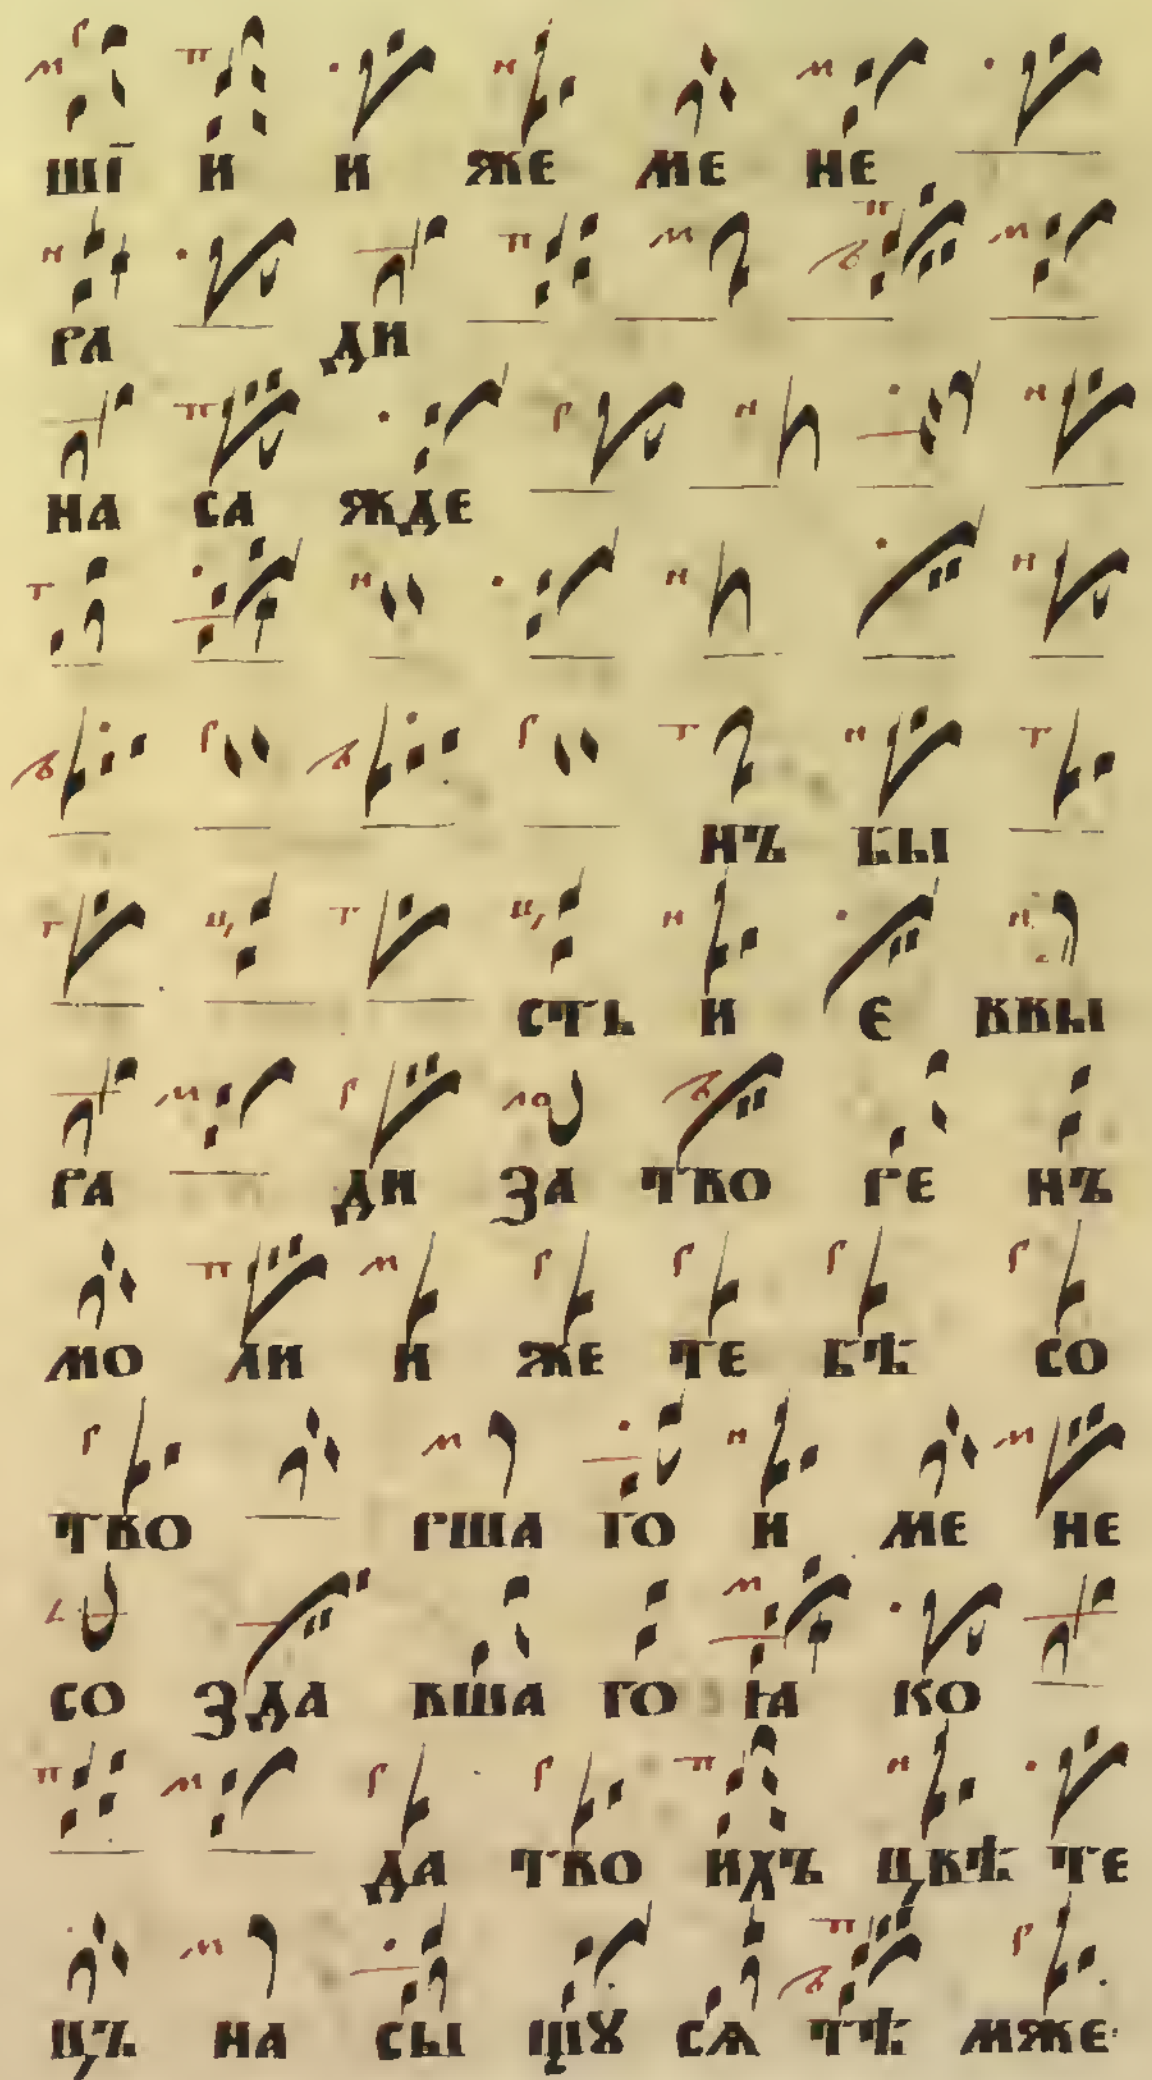 шї и и же ме не
ра ди
на са жде
нъ бы
сть и е ввы
ра ди за тво ре нъ
мо ли и же те бѣ со
тво рша го и ме не
со зда вша го ꙗ ко
да тво ихъ цвѣ те
цъ на сы щꙋ сѧ тѣ мже